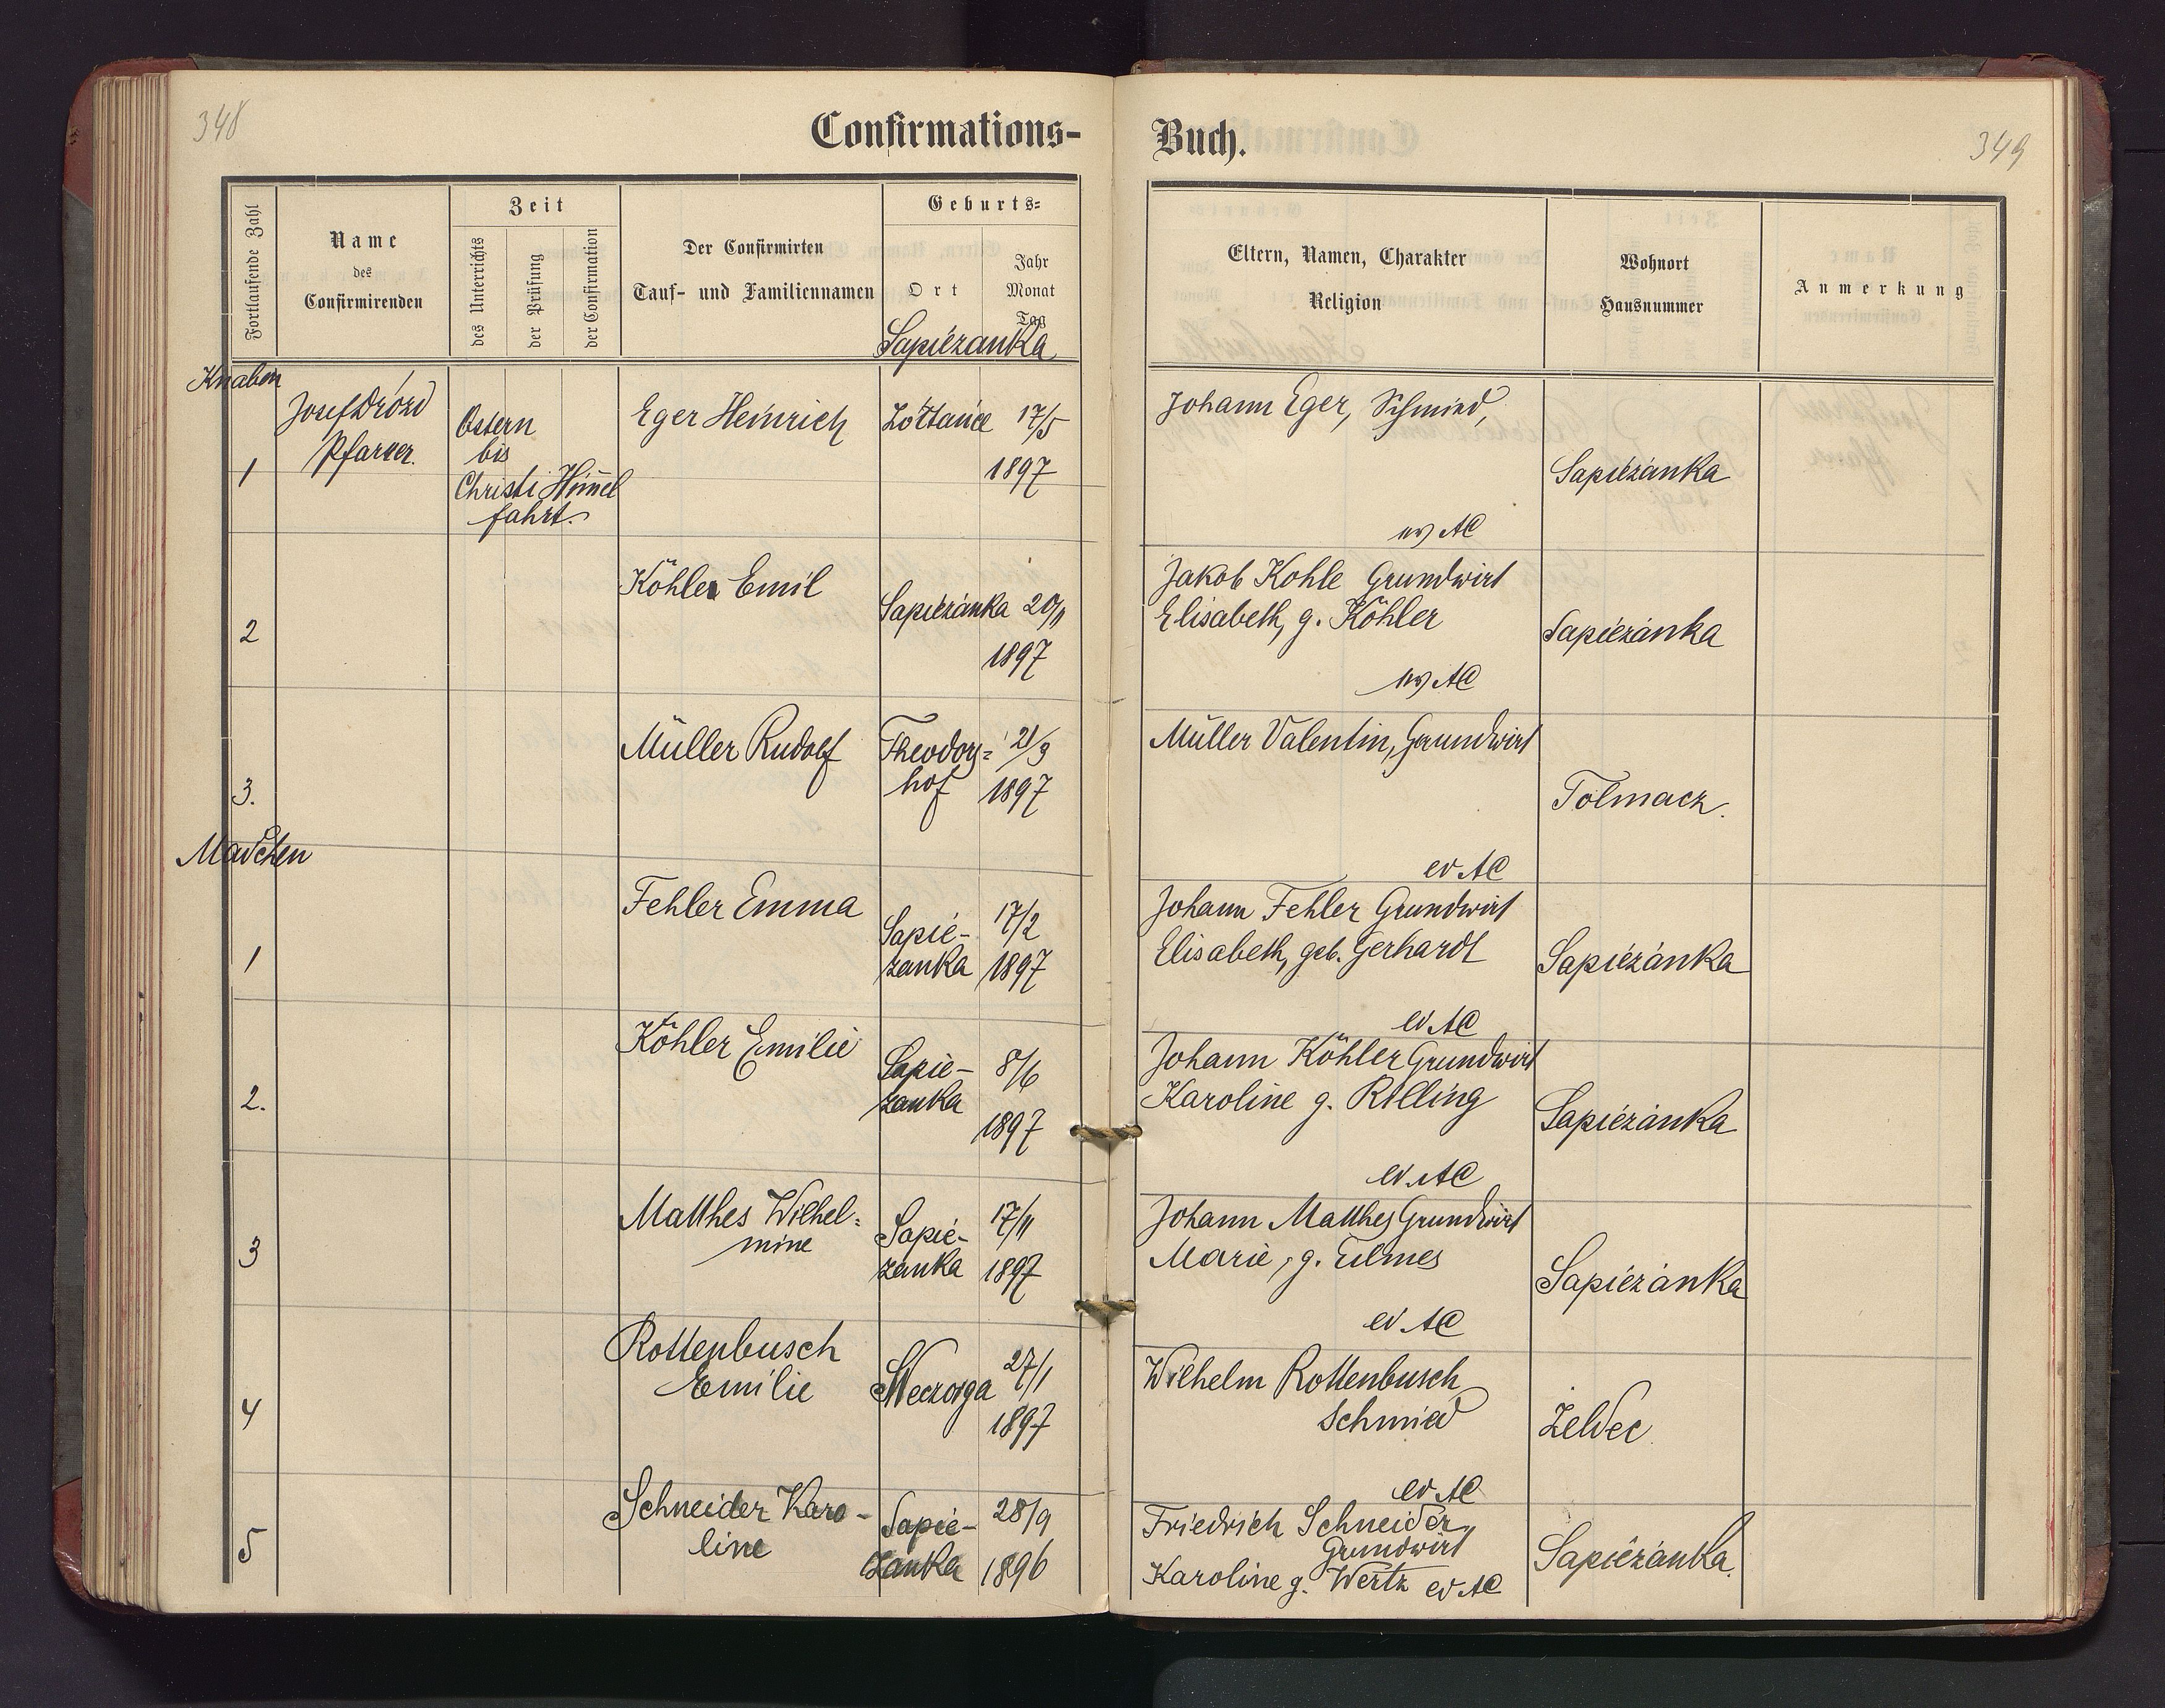 348
Confirmations-
Buch.
349
Fortlaufende Zahl
Name
des
Confirmirenden
Zeit
des Unterrichts
der Prüfung
der Confirmation
Der Confirmirten
Tauf- und Familiennamen
Geburts-
Ort
Jahr
Monat
Tag
Sapiezanka
Eltern, Namen, Charakter
Religion
Wohnort
Hausnummer
Anmerkung
Knaben
1
Josef Drózd
Pfarrer.
Ostern
bis
Christi Him̄el
fahrt.
Eger Heinrich
17/5
1897
Johann Eger, Schmied,
ev AC
Sapiezanka
2
Köhler Emil
Sapiezanka 20/11
1897
Jakob Kohle Grundwirt
Elisabeth, g. Köhler
ev AC
Sapiezanka
3.
Müller Rudolf
Theodors=
hof
21/3
1897
Müller Valentin, Grundwirt
ev AC
Tolmacz.
Madchen
1
Fehler Emma
Sapie-
zanka
17/2
1897
Johann Fehler Grundwirt
Elisabeth, geb. Gerhardt
ev AC
Sapiezanka
2.
Köhler Emilie
Sapie-
zanka
8/6
1897
Johann Köhler Grundwirt
Karoline g. Rilling
ev. AC
Sapiezanka
3
Matthes Wilhel-
mine
Sapie-
zanka
17/11
1897
Johann Matthes Grundwirt
Marie, g. Ulmes
ev AC
Sapiezanka
4
Rottenbusch
Emilie
27/1
1897
Wilhelm Rottenbusch
Schmied
ev AC
Żeldec
5
Schneider Karo-
line
Sapie-
zanka
28/9
1896
Friedrich Schneider
Grundwirt
Karoline g. Wertz ev AC
Sapiezanka.